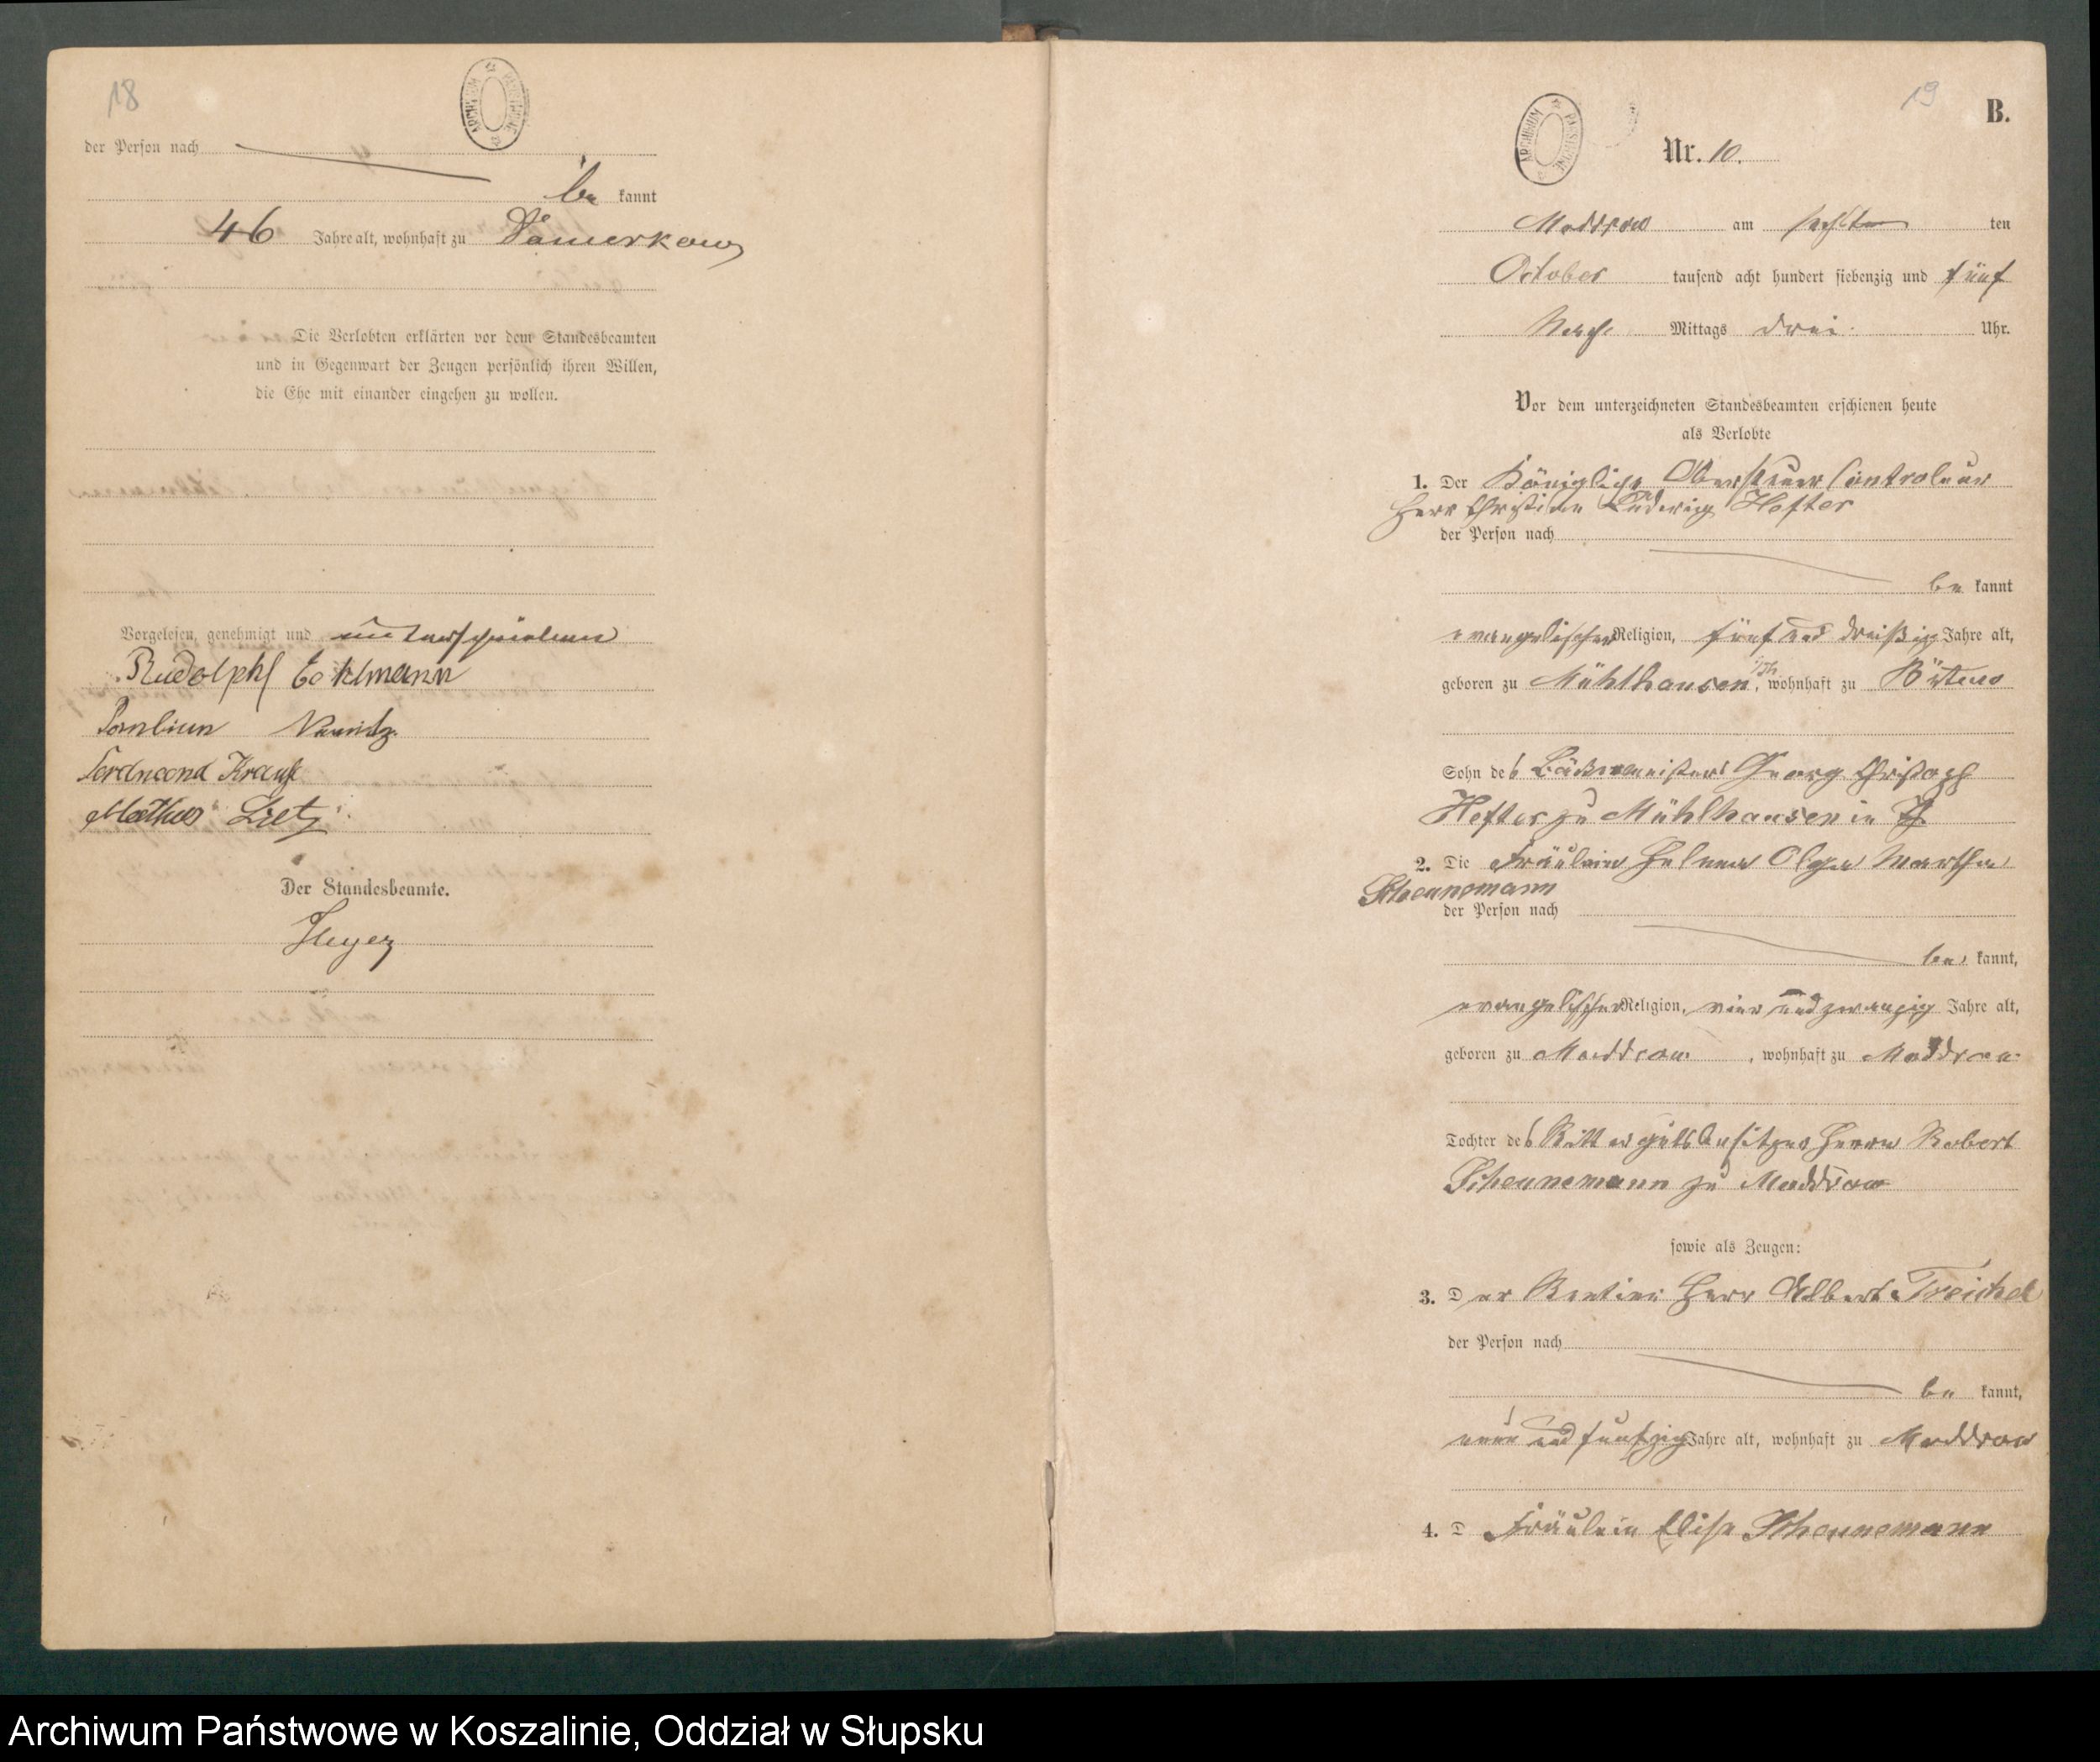 18
ARCHIWUM PAŃSTWOWE
der Person nach
be kannt
46 Jahre alt, wohnhaft zu Damerkow
Die Verlobten erklärten vor dem Standesbeamten
und in Gegenwart der Zeugen persönlich ihren Willen,
die Ehe mit einander eingehen zu wollen.
Vorgelesen, genehmigt und unterschrieben
Rudolph
Ferdinand Krause
Lietz
Der Standesbeamte.
19
B.
ARCHIWUM PAŃSTWOWE
Nr. 10.
Moddrow am sechsten ten
October tausend acht hundert siebenzig und fünf
Nach Mittags drei Uhr.
Vor dem unterzeichneten Standesbeamten erschienen heute
als Verlobte
1. Der Königliche Obersteuer Controleur
Herr Christian Ludwig Hefter
der Person nach
be kannt
evangelischer Religion, fünf und dreißig Jahre alt,
geboren zu Mühlhausen i/Th, wohnhaft zu Bütow
Sohn des Georg Christoph
Hefter zu Mühlhausen in Th.
2. Die Fräulein Helene Olga Martha
Scheunemann
der Person nach
be kannt,
evangelischer Religion, vier und zwanzig Jahre alt,
geboren zu Moddrow, wohnhaft zu Moddrow
Tochter des Rittergutsbesitzers Herrn Robert
Scheunemann zu Moddrow
sowie als Zeugen:
3. Der Rentier Herr Albert Treichel
der Person nach
be kannt,
neun und funfzig Jahre alt, wohnhaft zu Moddrow
4. D Fräulein Elise Scheunemann
Archiwum Państwowe w Koszalinie, Oddział w Słupsku